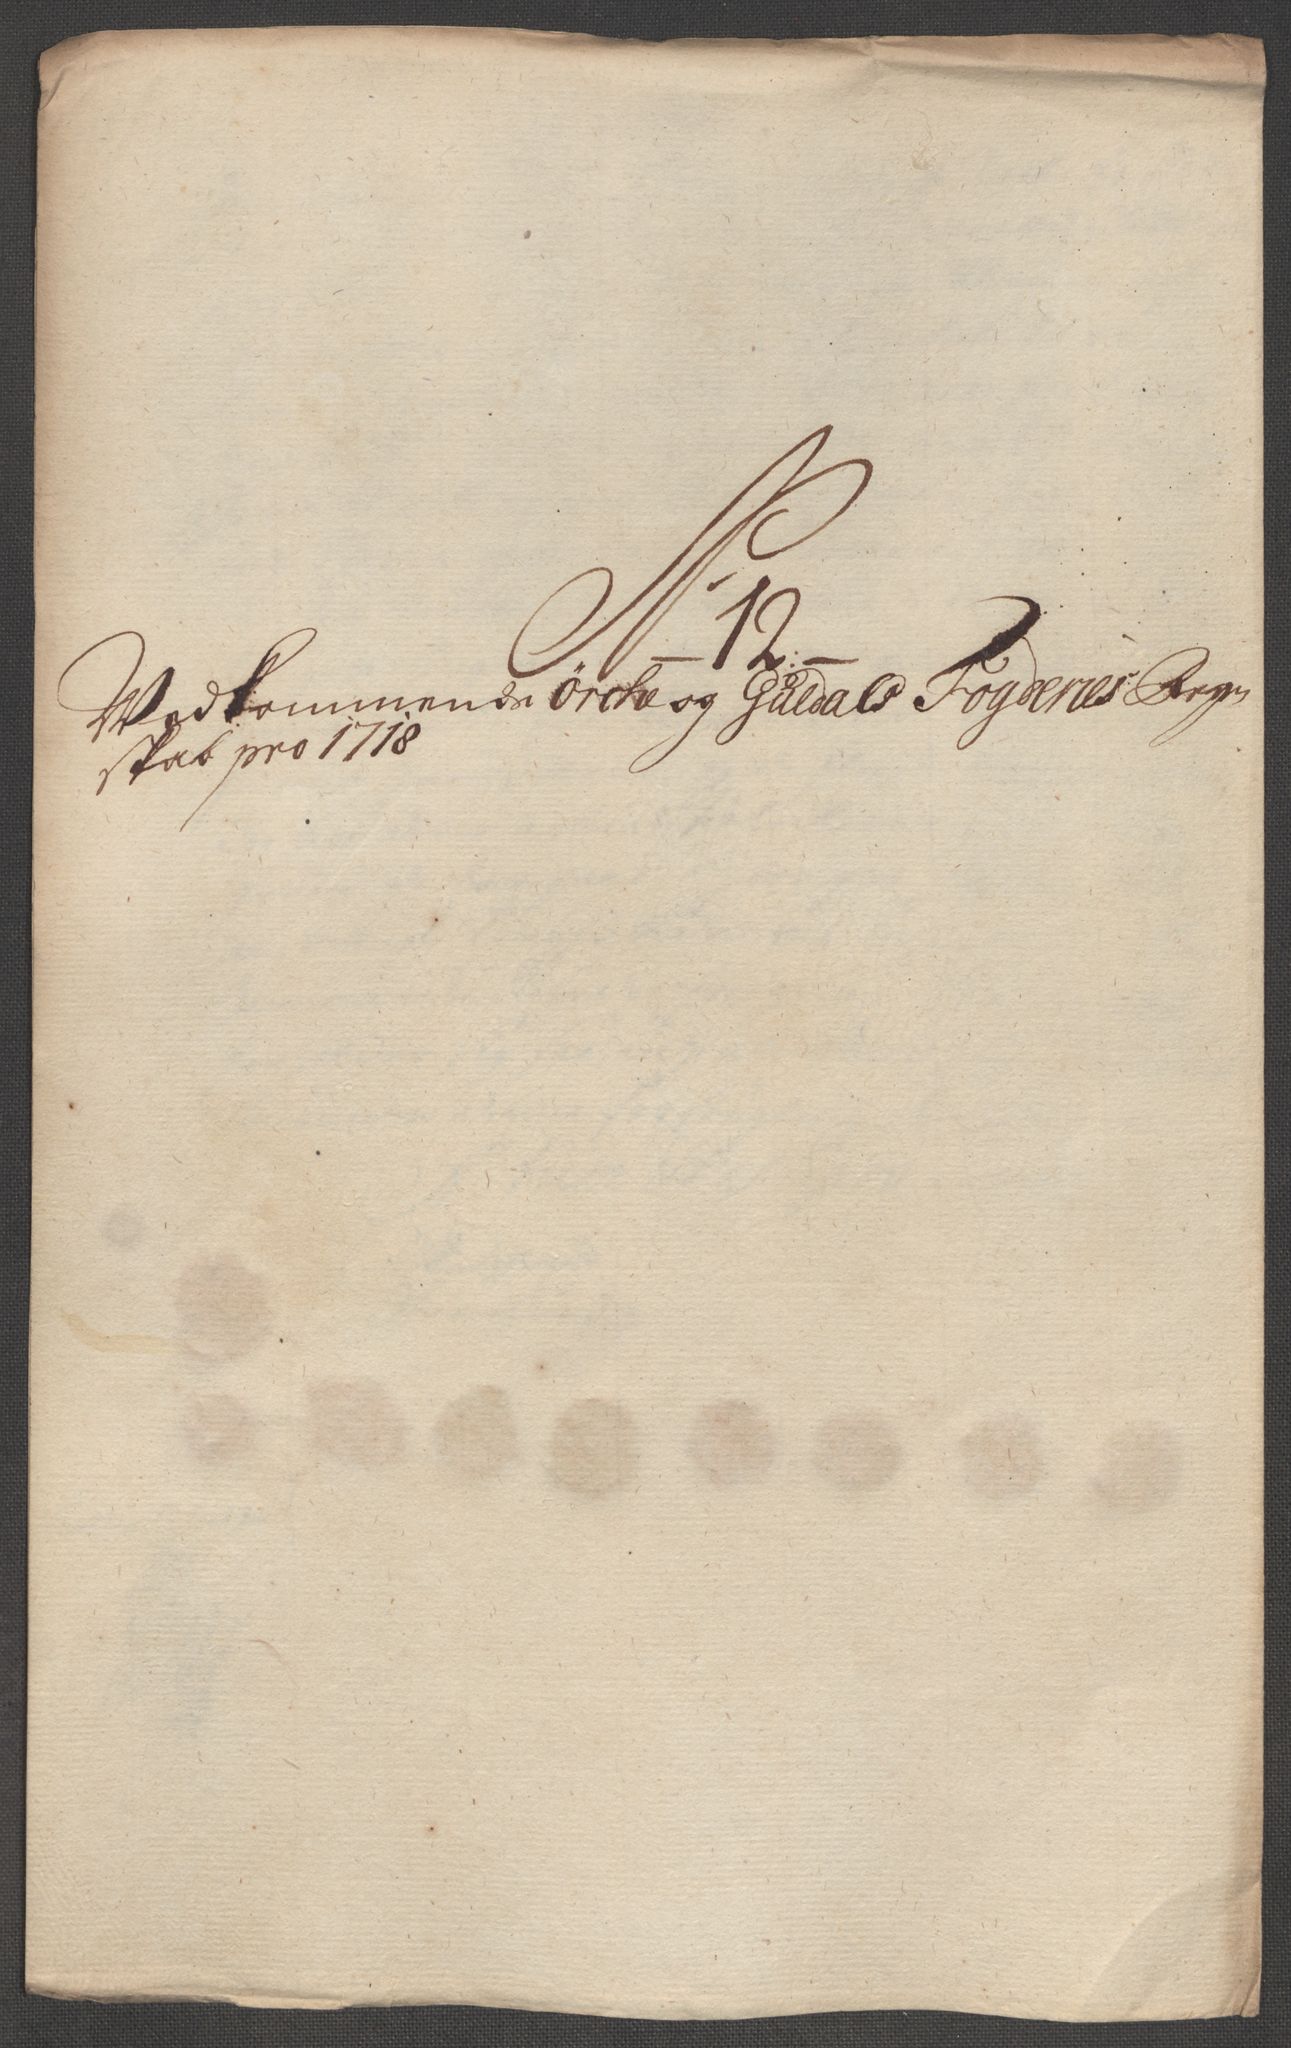 N
- 12. -
Vedkommende Örche og Guldals Fogderies Regn
skab pro 1718